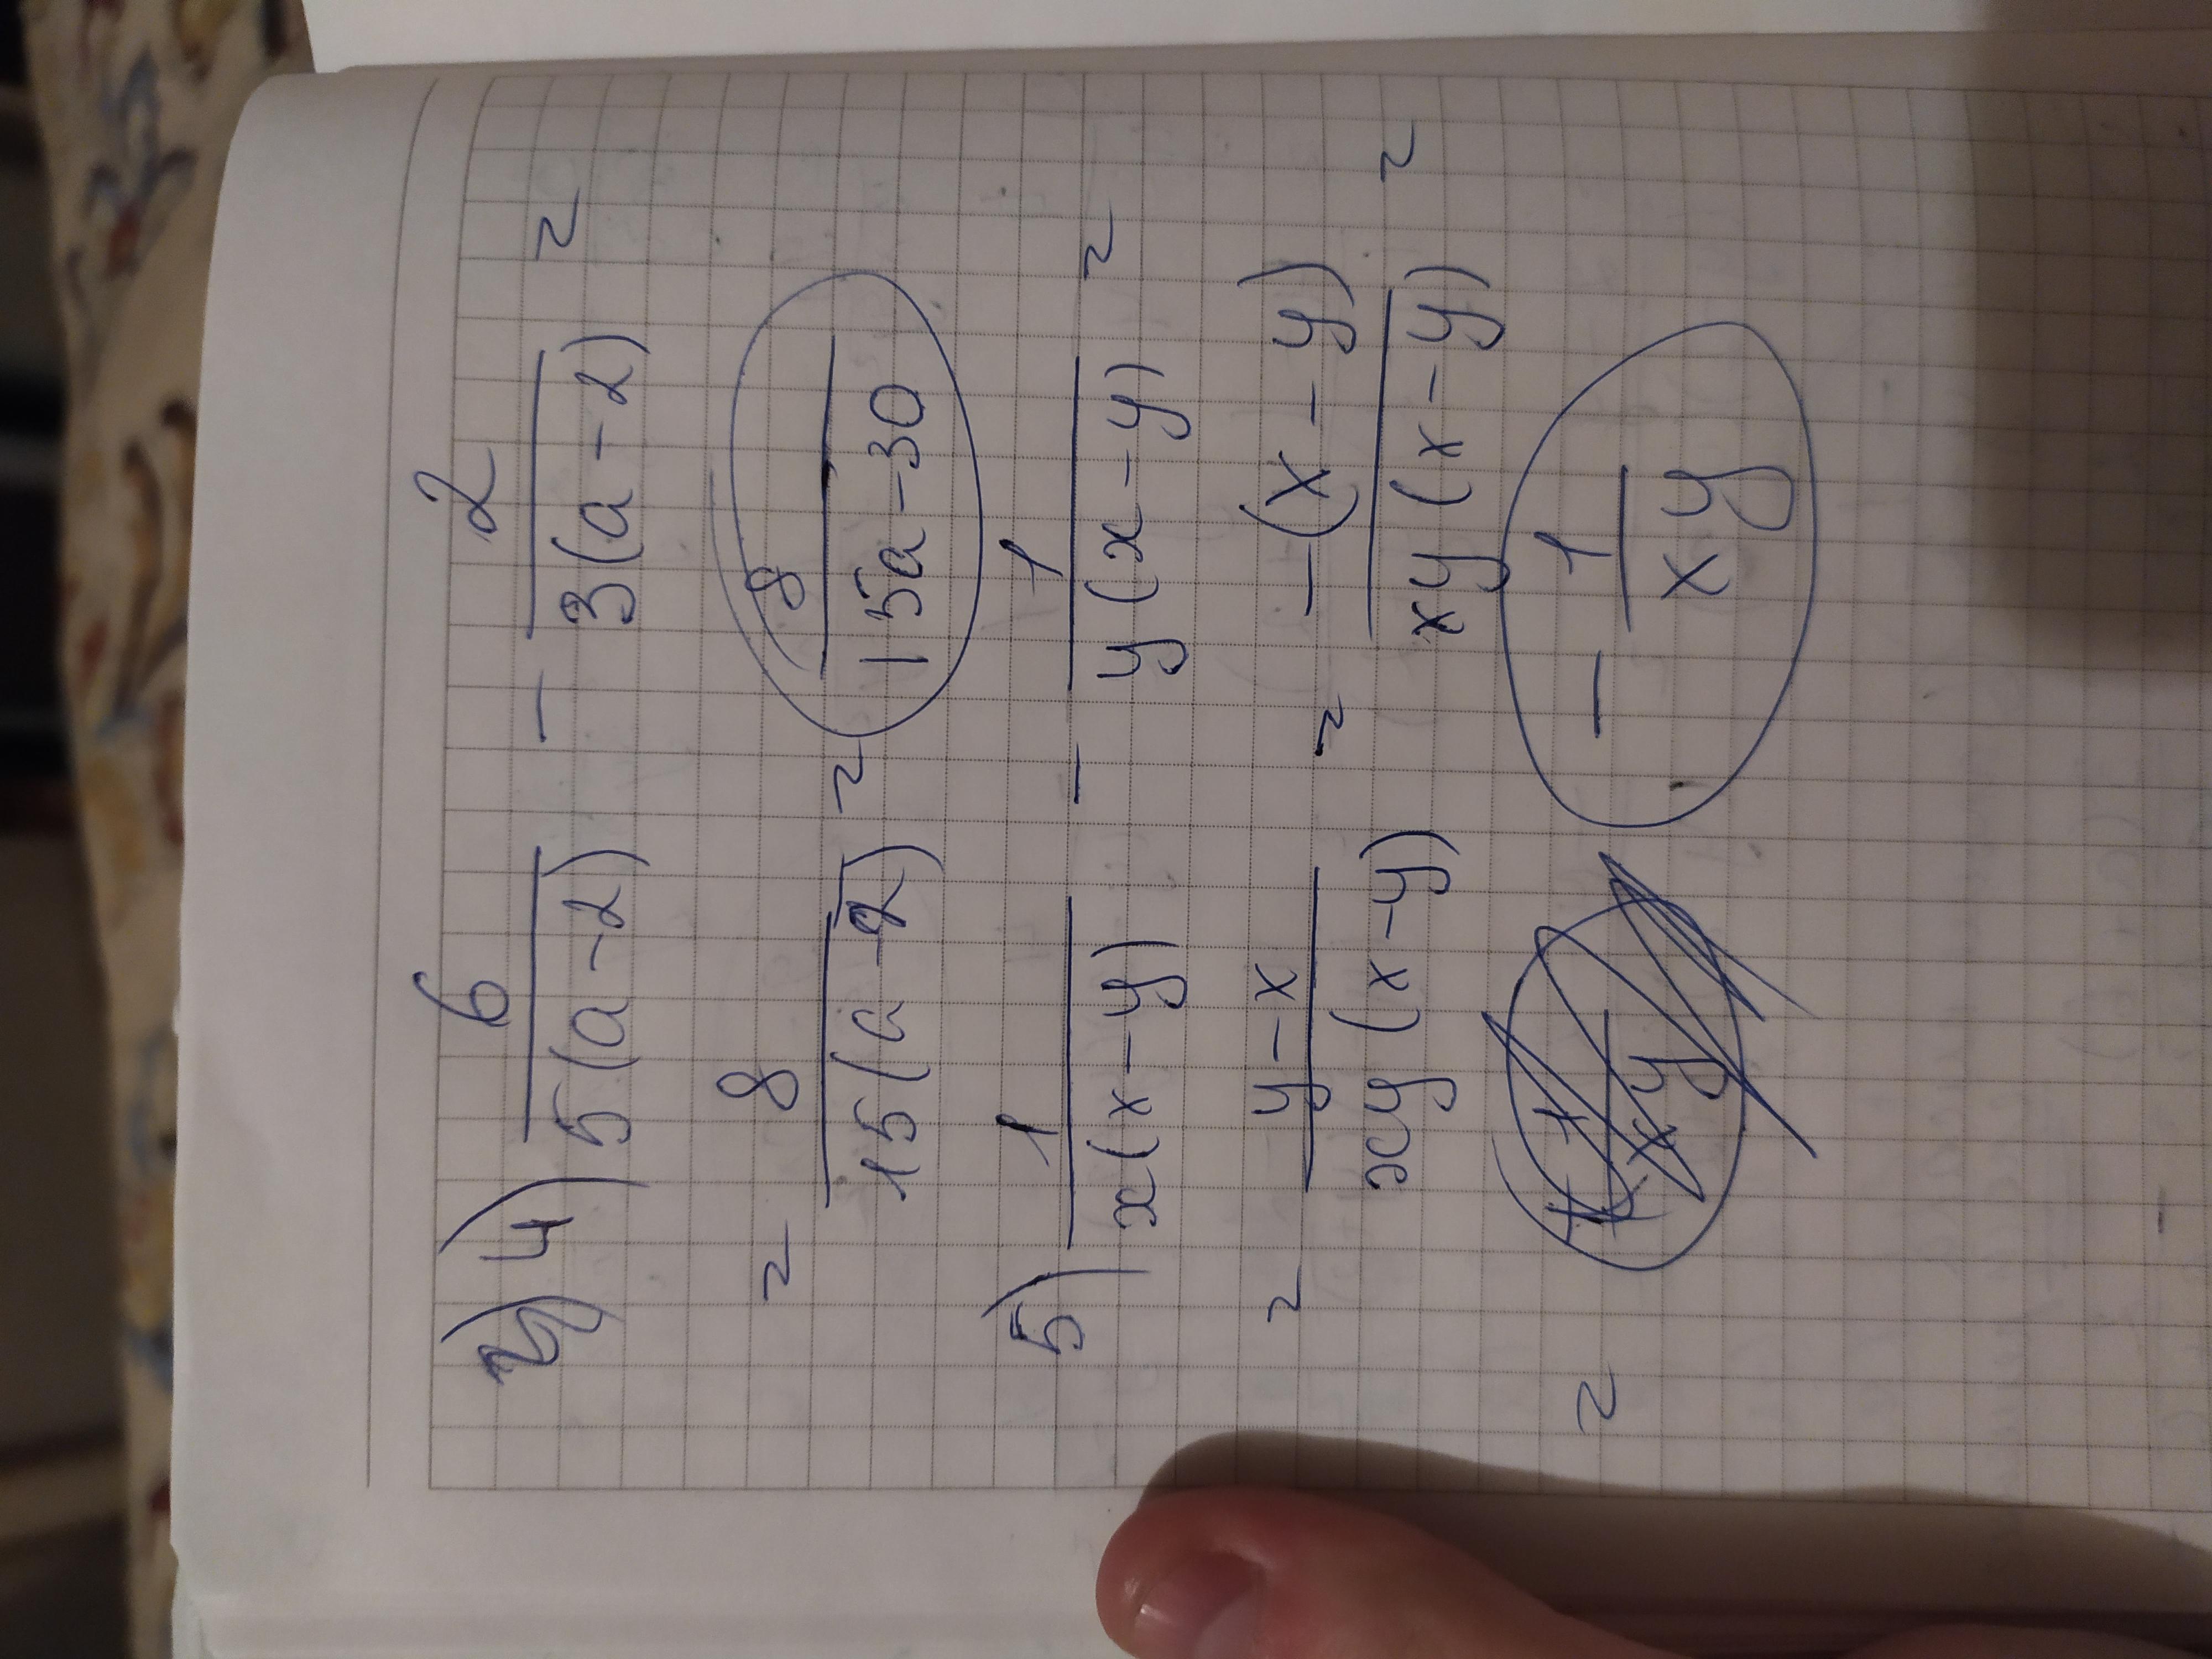 4) 6/5(a-2) - 2/3(a-2) =
= 8/15(a-2) = 8/15a-30
5) 1/x(x-y) - 1/y(x-y) =
= y-x/xy(x-y) = -(x-y)/xy(x-y) =
= - 1/xy